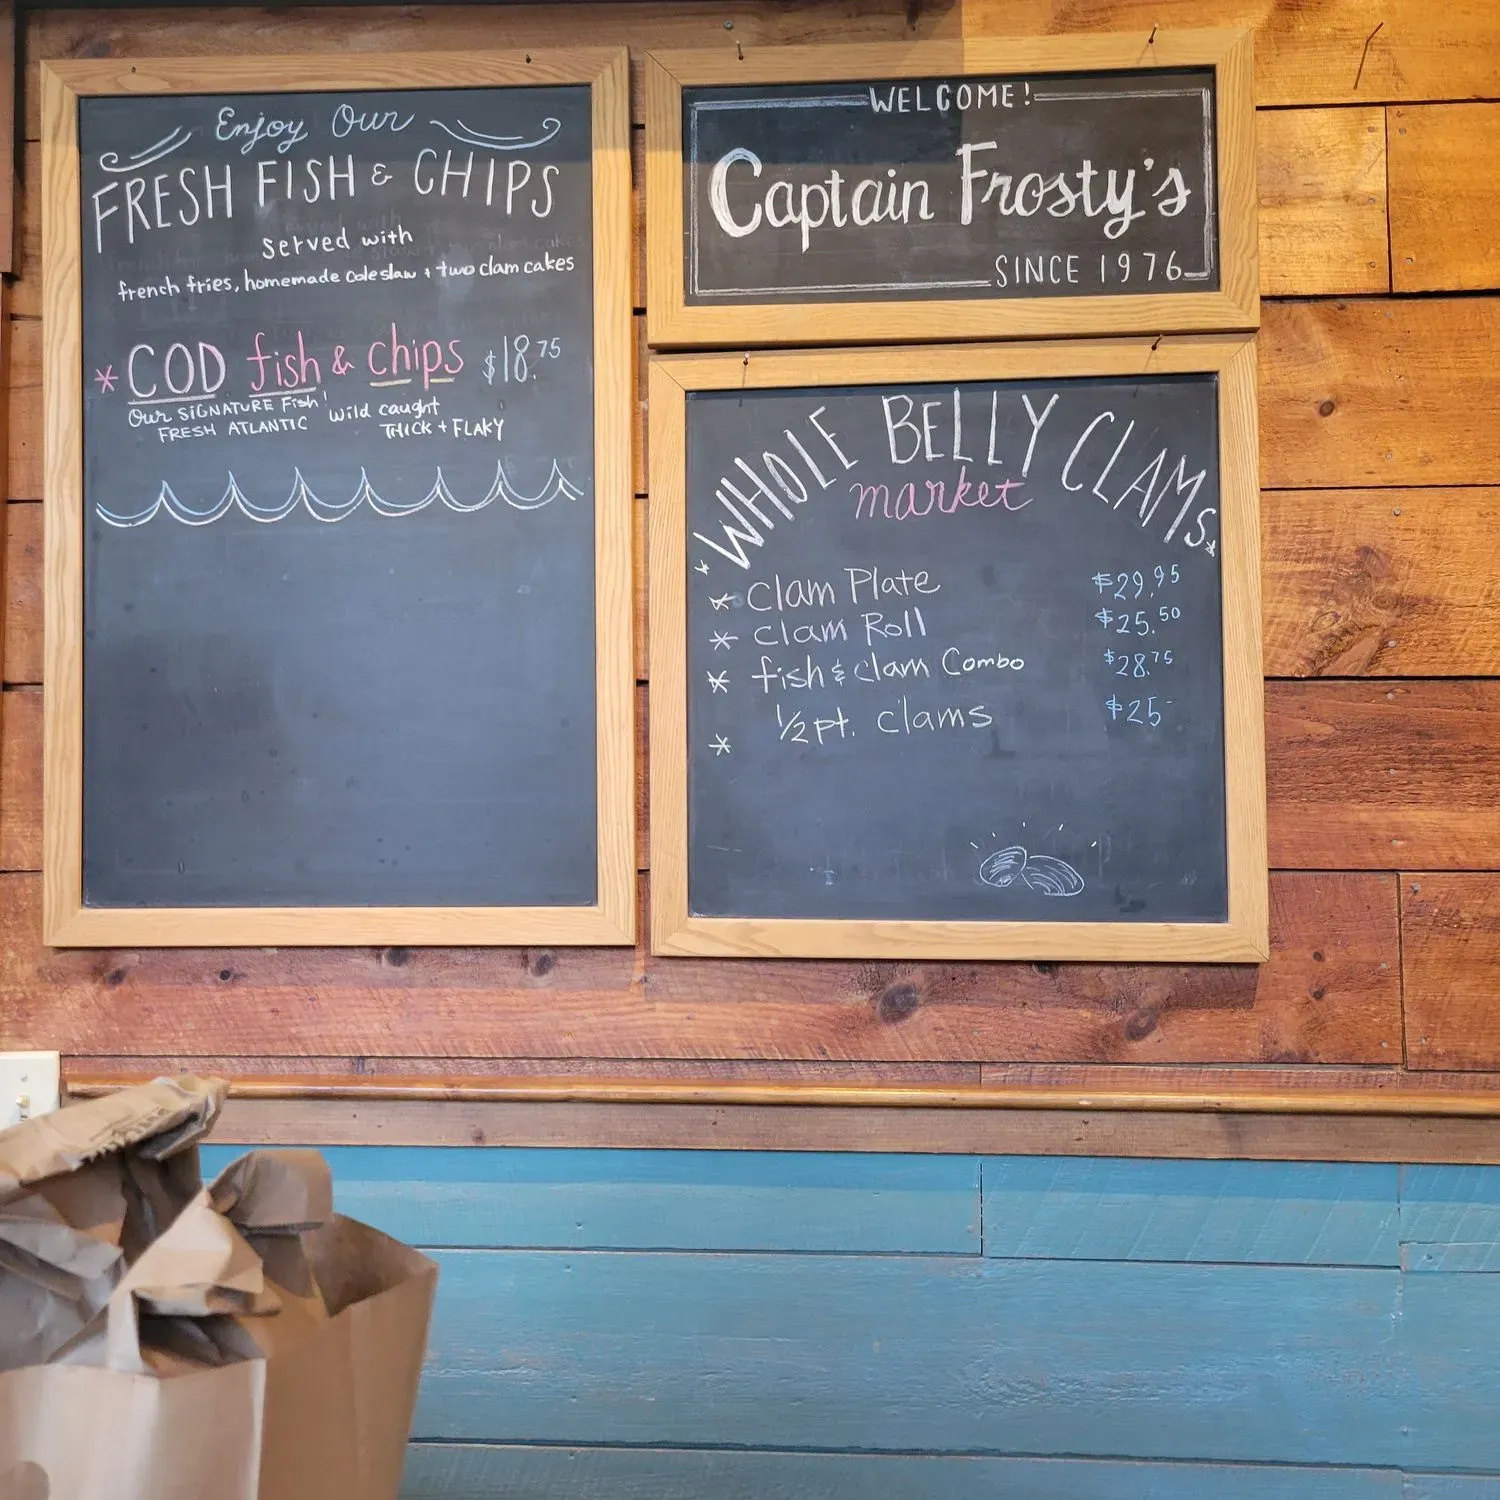 Enjoy Our
FRESH FISH & CHIPS
Served with
french fries, homemade coleslaw + two clam cakes
* COD fish & chips $18.75
Our SIGNATURE Fish! wild caught
FRESH ATLANTIC THICK + FLAKY
WELCOME!
Captain Frosty's
SINCE 1976
*WHOLE BELLY CLAMS*
market
* Clam Plate $29.95
* Clam Roll $25.50
* fish & clam Combo $28.75
* 1/2 pt. clams $25-